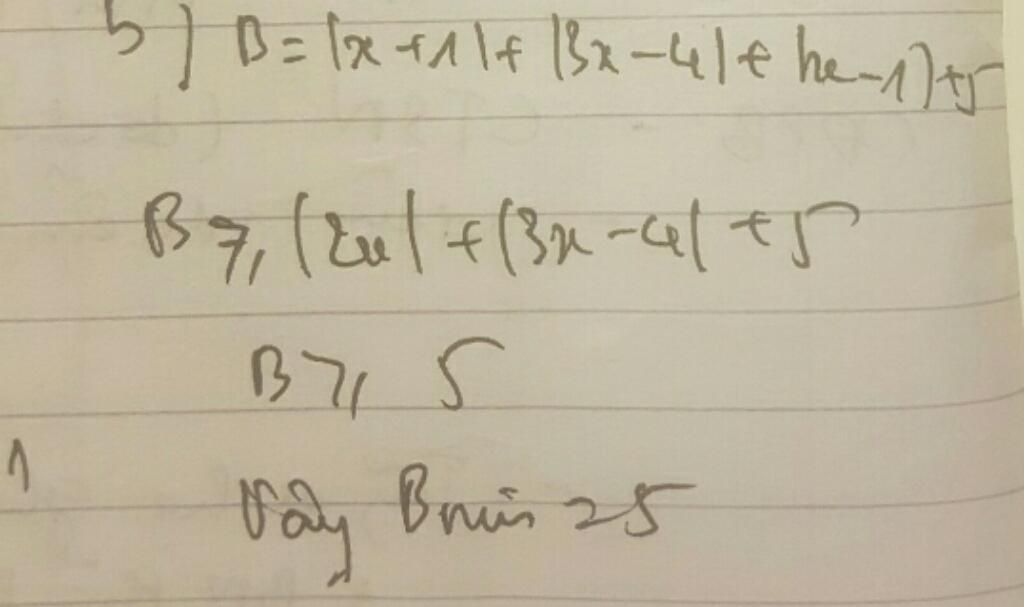 b) B = |x + 1| + |3x - 4| + |x - 1| + 5
B ≥ |2x| + |3x - 4| + 5
B ≥ 5
1
Vậy Bmin = 5